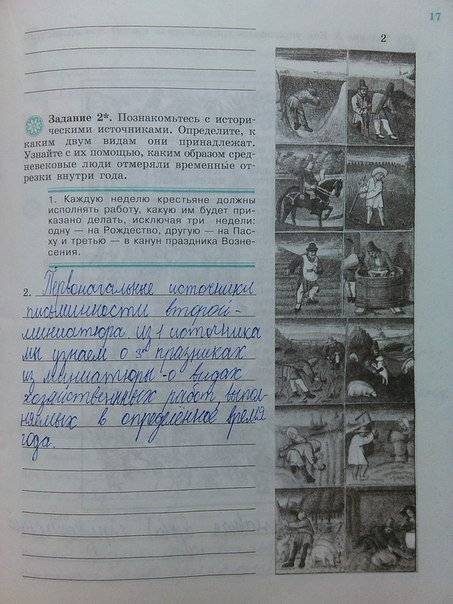 17
2
Задание 2*. Познакомьтесь с истори-
ческими источниками. Определите, к
каким двум видам они принадлежат.
Узнайте с их помощью, каким образом сред-
невековые люди отмеряли временные от-
резки внутри года.
1. Каждую неделю крестьяне должны
исполнять работу, какую им будет при-
казано делать, исключая три недели:
одну — на Рождество, другую — на Пас-
ху и третью — в канун праздника Возне-
сения.
2. Первоначальные источники
письменности второй-
миниатюра из 1 источника
мы узнаем о 3х празниках
из миниатюры-о видах
хозяйственных работ, выпол-
няемых в определённое время
года.